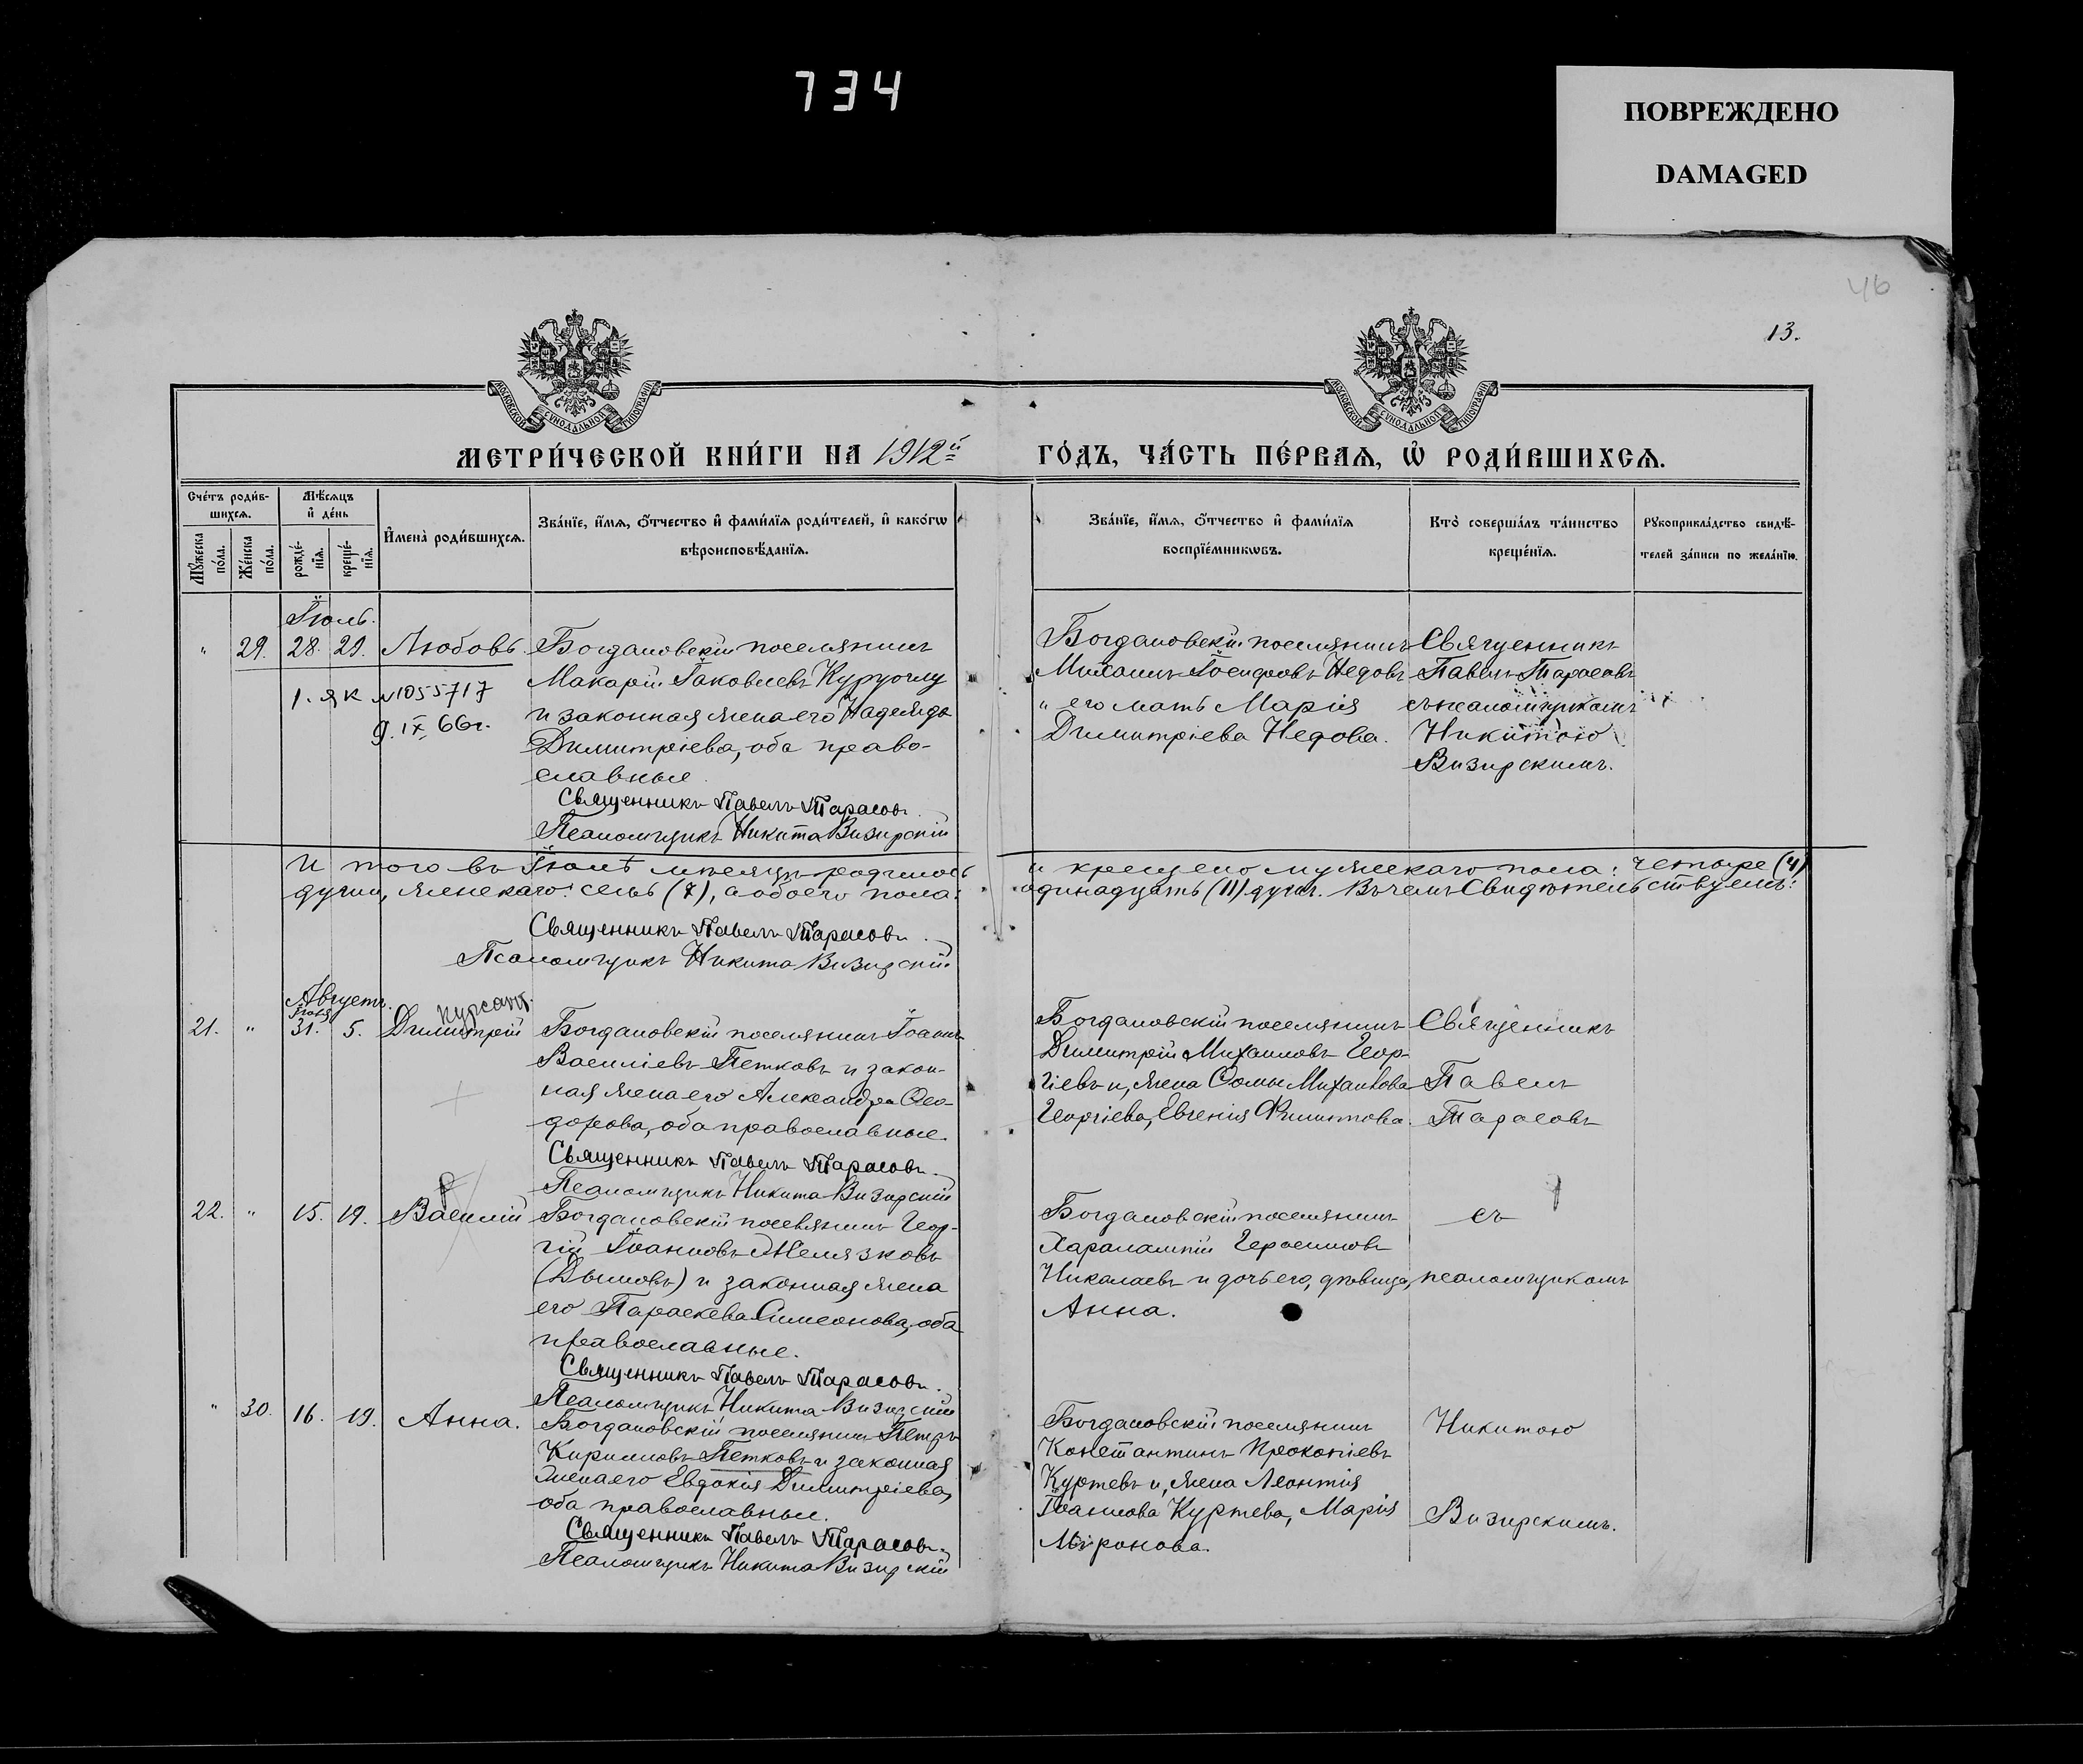 734
ПОВРЕЖДЕНО
DAMAGED
46
13.
МОСКОВСКОЙ СѴНОДАЛЬНОЙ ТИПОГРАФІИ
МОСКОВСКОЙ СѴНОДАЛЬНОЙ ТИПОГРАФІИ
МЕТРИ́ЧЕСКОЙ КНИ́ГИ НА 1912й
ГО́ДЪ, ЧА́СТЬ ПЕ́РВАѦ, Ѡ҆ РОДИ́ВШИХСѦ.
Сче́тъ роди́в-
шихсѧ.
Мꙋ́жеска по́ла.
Же́нска по́ла.
Мѣ́сѧцъ
и҆ де́нь
рожде́-
нїѧ.
креще́-
нїѧ.
И҆мена̀ роди́вшихсѧ.
Зва́нїе, и҆́мѧ, ѻ҆́тчество и҆ фами́лїѧ роди́телей, и҆ како́гѡ
вѣроисповѣ́данїѧ.
Зва́нїе, и҆́мѧ, ѻ҆́тчество и҆ фами́лїѧ
воспрїе́мникѡвъ.
Кто̀ соверша́лъ та́инство
креще́нїѧ.
Рꙋкоприкла́дство свидѣ́-
телей за́писи по жела́нїю.
Іюль.
" 29. 28. 29. Любовь. Богдановскій поселянинъ
Макарій Іаковлевъ Куруоглу
и законная жена его Надежда
Димитріева, оба право-
славные.
Священникъ Павелъ Тарасовъ.
Псаломщикъ Никита Визирскій
1. ЯК №1055717
9. IX. 66г.
Богдановскій поселянинъ
Михаилъ Іосифовъ Недовъ
" его мать Марія
Димитріева Недова.
Священникъ
Павелъ Тарасовъ
съ псаломщикомъ
Никитою
Визирскимъ.
И того въ Іюлѣ мѣсяцѣ родилось и крещено мужескаго пола: четыре (4)
души, женскаго: семь (7), а обоего пола: одинадцать (11) душъ. Въ чемъ свидѣтельствуемъ:
Священникъ Павелъ Тарасовъ.
Псаломщикъ Никита Визирскій
Августъ.
Іюля
21. " 31. 5. Димитрій Богдановскій поселянинъ Іоаннъ
Василіевъ Петковъ и закон-
ная жена его Александра Ѳео-
дорова, оба православные.
Священникъ Павелъ Тарасовъ.
Псаломщикъ Никита Визирскій
Богдановскій поселянинъ
Димитрій Михаиловъ Геор-
гіевъ и, жена Ѳомы Михаилова
Георгіева, Евгенія Филиппова.
Священникъ
Павелъ
Тарасовъ
22. " 15. 19. Василій Богдановскій поселянинъ Геор-
гій Іоанновъ Желязковъ
(Дымовъ) и законная жена
его Параскева Симеонова, оба
православные.
Священникъ Павелъ Тарасовъ.
Псаломщикъ Никита Визирскій
Богдановскій поселянинъ
Харалампій Герасимовъ
Николаевъ и дочь его, дѣвица,
Анна.
съ
псаломщикомъ
" 30. 16. 19. Анна. Богдановскій поселянинъ Петръ
Кирилловъ Петковъ и законная
жена его Евдокія Димитріева,
оба православные.
Священникъ Павелъ Тарасовъ.
Псаломщикъ Никита Визирскій
Богдановскій поселянинъ
Константинъ Прокопіевъ
Куртевъ и, жена Леонтія
Іоаннова Куртева, Марія
Міронова.
Никитою
Визирскимъ.